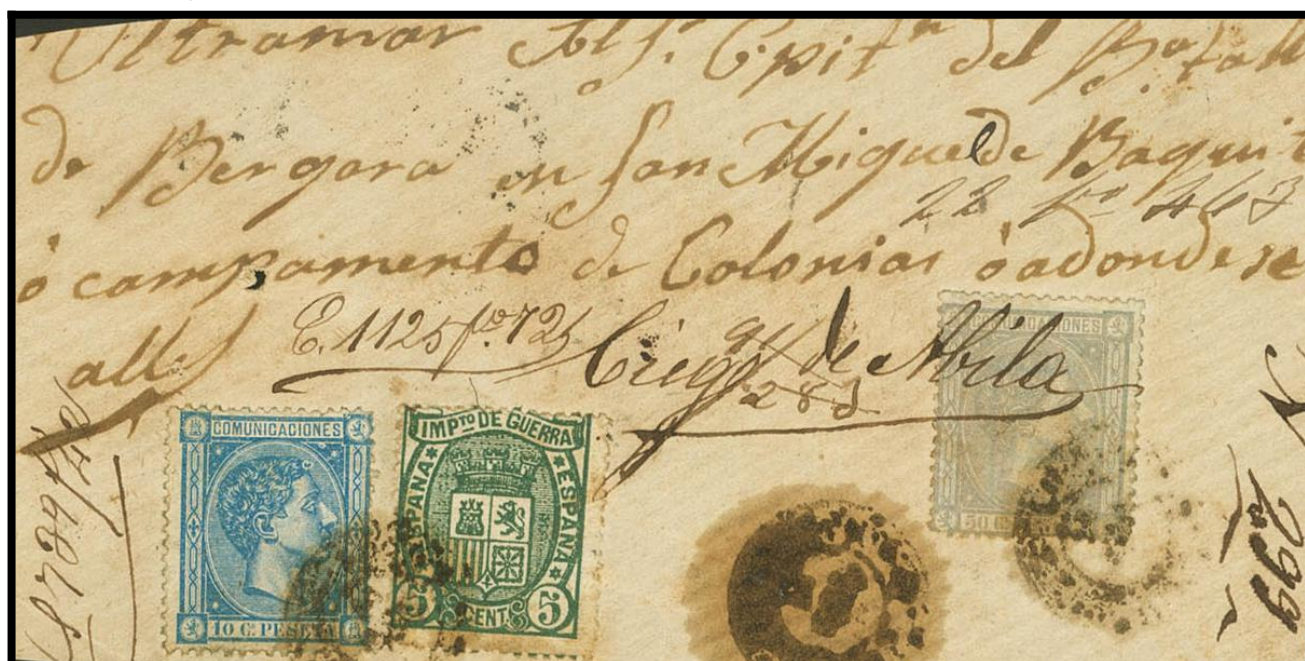 Ultramar Al Sr. Cpitn del Batall
de Bergara en San Miguel de Baguit
22 fo 463
ó campamento de Colonias ó adonde se
alle
E. 1125 fo. 725
Ciego de Abila
283
COMUNICACIONES
10 C. PESETA
IMPTO DE GUERRA
ESPAÑA ESPAÑA
5 CENT. 5
COMUNICACIONES
50 C.
299